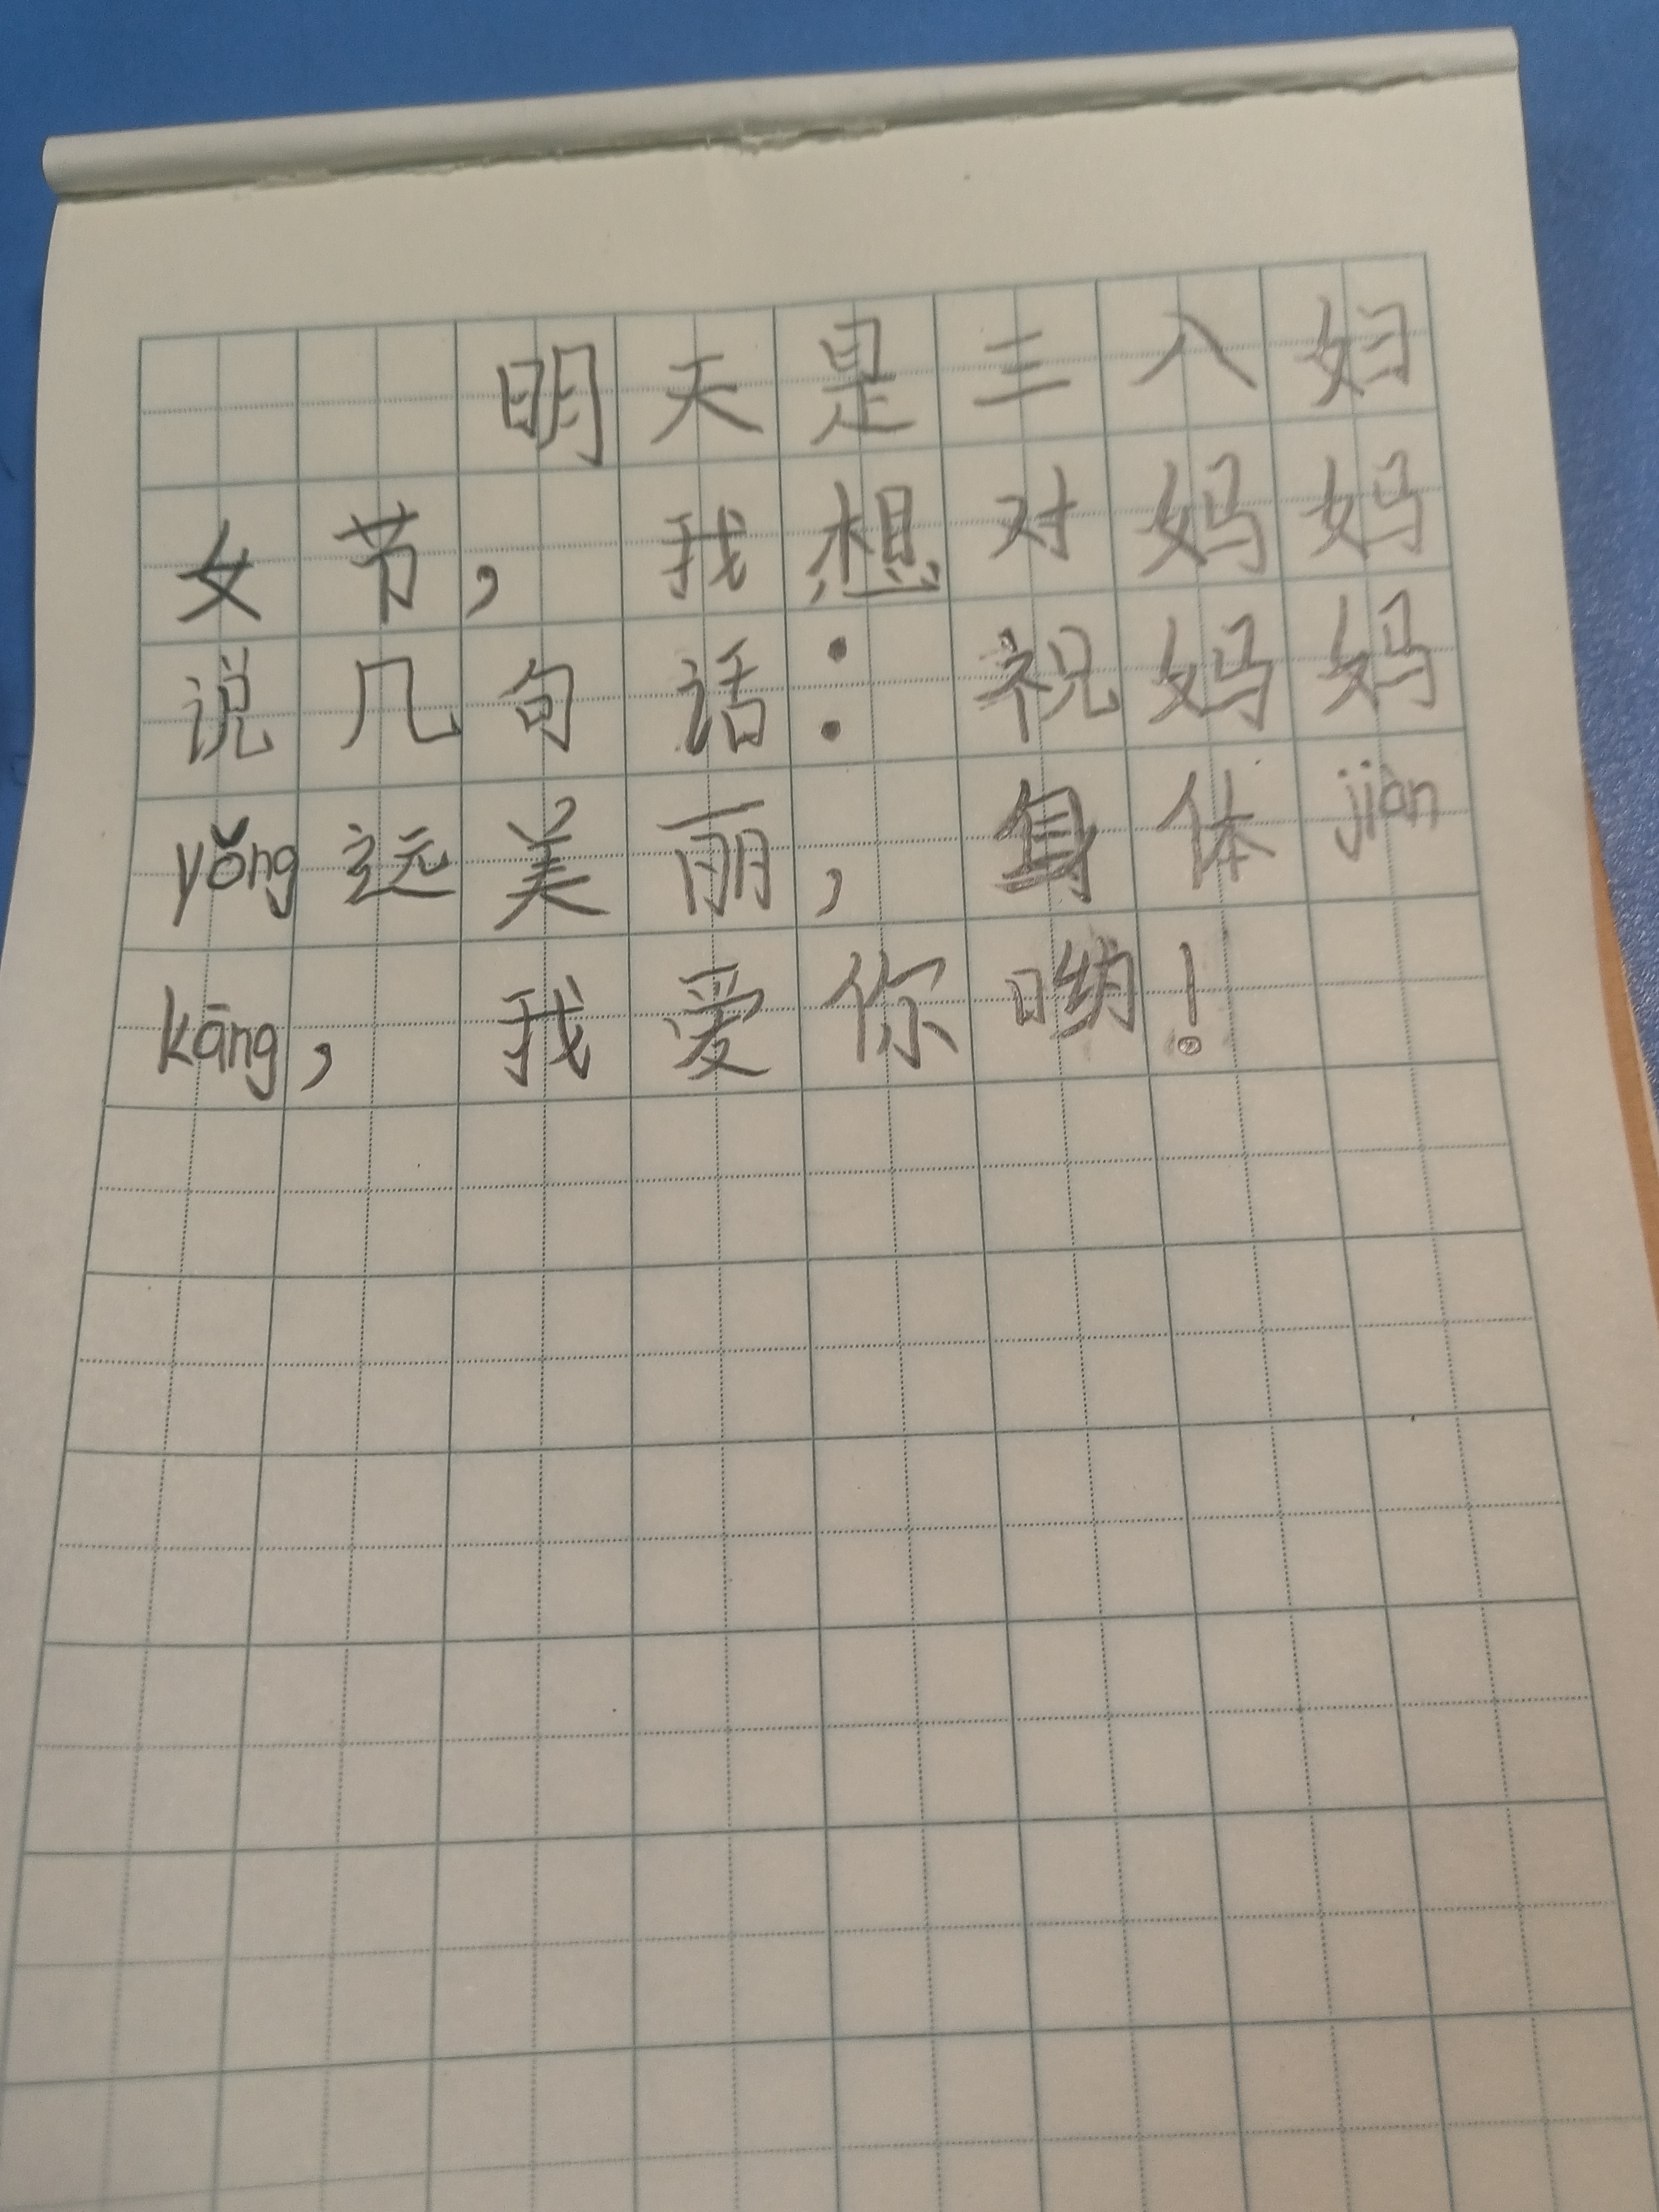 明天是三八妇
女节，我想对妈妈
说几句话：祝妈妈
yǒng远美丽，身体jiàn
kāng，我爱你哟！